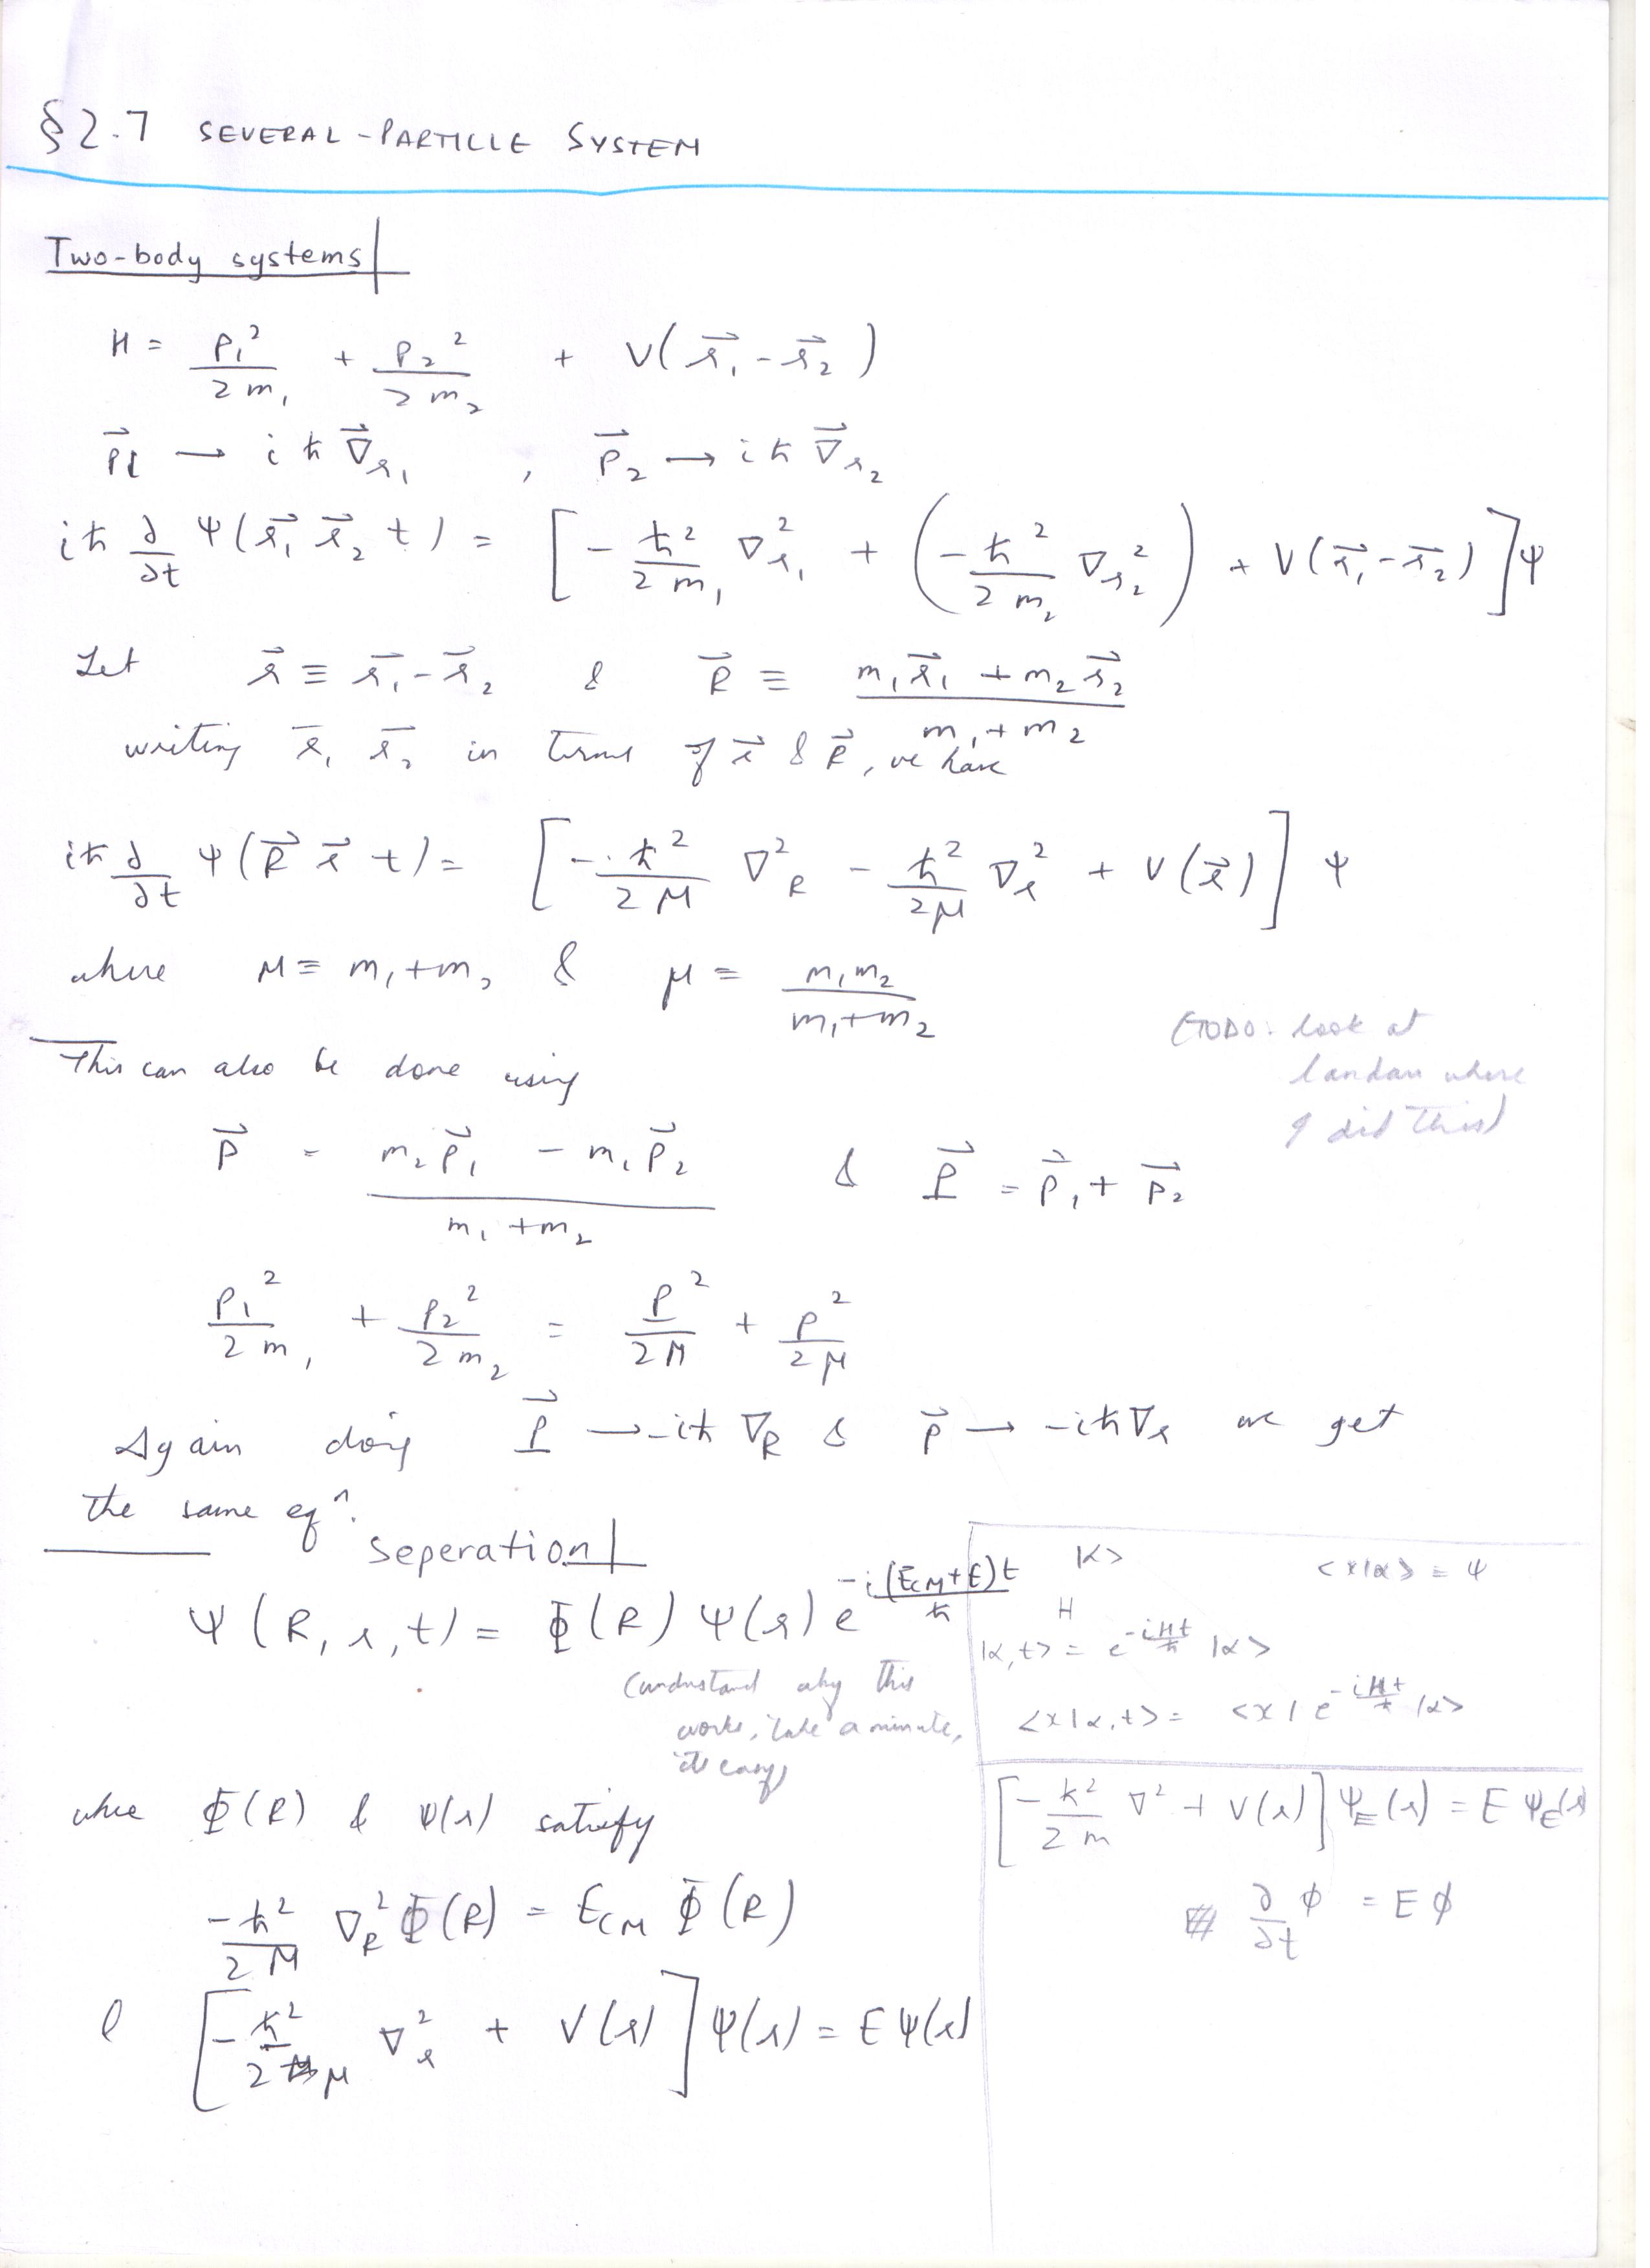 §2.7 SEVERAL-PARTICLE SYSTEM
Two-body systems
H = p₁²/2m₁ + p₂²/2m₂ + V(r⃗₁ - r⃗₂)
p⃗₁ → iħ ∇⃗_r₁ , p⃗₂ → iħ ∇⃗_r₂
iħ ∂/∂t Ψ(r⃗₁ r⃗₂ t) = [-ħ²/2m₁ ∇²_r₁ + (-ħ²/2m₂ ∇_r₂²) + V(r⃗₁ - r⃗₂)]Ψ
Let r⃗ ≡ r⃗₁ - r⃗₂ & R⃗ ≡ (m₁r⃗₁ + m₂r⃗₂)/(m₁ + m₂)
writing r⃗₁ r⃗₂ in terms of r⃗ & R⃗, we have
iħ ∂/∂t Ψ(R⃗ r⃗ t) = [-ħ²/2M ∇²_R - ħ²/2μ ∇_r² + V(r⃗)] Ψ
where M ≡ m₁+m₂ & μ = m₁m₂/(m₁+m₂)
(TODO: look at
landau where
I did this)
This can also be done using
p⃗ = (m₂p⃗₁ - m₁p⃗₂)/(m₁+m₂) & P⃗ = p⃗₁ + p⃗₂
p₁²/2m₁ + p₂²/2m₂ = P²/2M + p²/2μ
Again doing P⃗ → -iħ ∇_R & p⃗ → -iħ∇_r we get
the same eqⁿ.
Seperation
Ψ(R, r, t) = Φ(R) Ψ(r) e^(-i(E_CM+E)t/ħ)
(understand why this
works, take a minute,
its easy)
where Φ(R) & Ψ(r) satisfy
-ħ²/2M ∇_R² Φ(R) = E_CM Φ(R)
& [-ħ²/2μ ∇_r² + V(r)] Ψ(r) = EΨ(r)
|α> <x|α> = Ψ
H
|α,t> = e^(-iHt/ħ) |α>
<x|α,t> = <x| e^(-iHt/ħ) |α>
[-ħ²/2m ∇² + V(r)] Ψ_E(r) = E Ψ_E(r)
∂/∂t ϕ = Eϕ